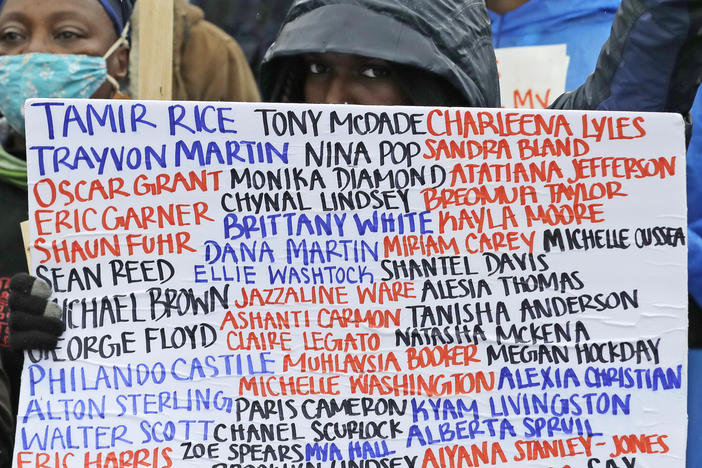 MY
TAMIR RICE TONY MCDADE CHARLEENA LYLES
TRAYVON MARTIN NINA POP SANDRA BLAND
OSCAR GRANT MONIKA DIAMOND ATATIANA JEFFERSON
ERIC GARNER CHYNAL LINDSEY BREONNA TAYLOR
SHAUN FUHR BRITTANY WHITE KAYLA MOORE
DANA MARTIN MIRIAM CAREY MICHELLE CUSSEA
SEAN REED ELLIE WASHTOCK SHANTEL DAVIS
MICHAEL BROWN JAZZALINE WARE ALESIA THOMAS
GEORGE FLOYD ASHANTI CARMON TANISHA ANDERSON
CLAIRE LEGATO NATASHA MCKENA
PHILANDO CASTILE MUHLAYSIA BOOKER MEGAN HOCKDAY
MICHELLE WASHINGTON ALEXIA CHRISTIAN
ALTON STERLING PARIS CAMERON KYAM LIVINGSTON
WALTER SCOTT CHANEL SCURLOCK ALBERTA SPRUIL
ERIC HARRIS ZOE SPEARS MYA HALL AIYANA STANLEY-JONES
LINDSEY SAY